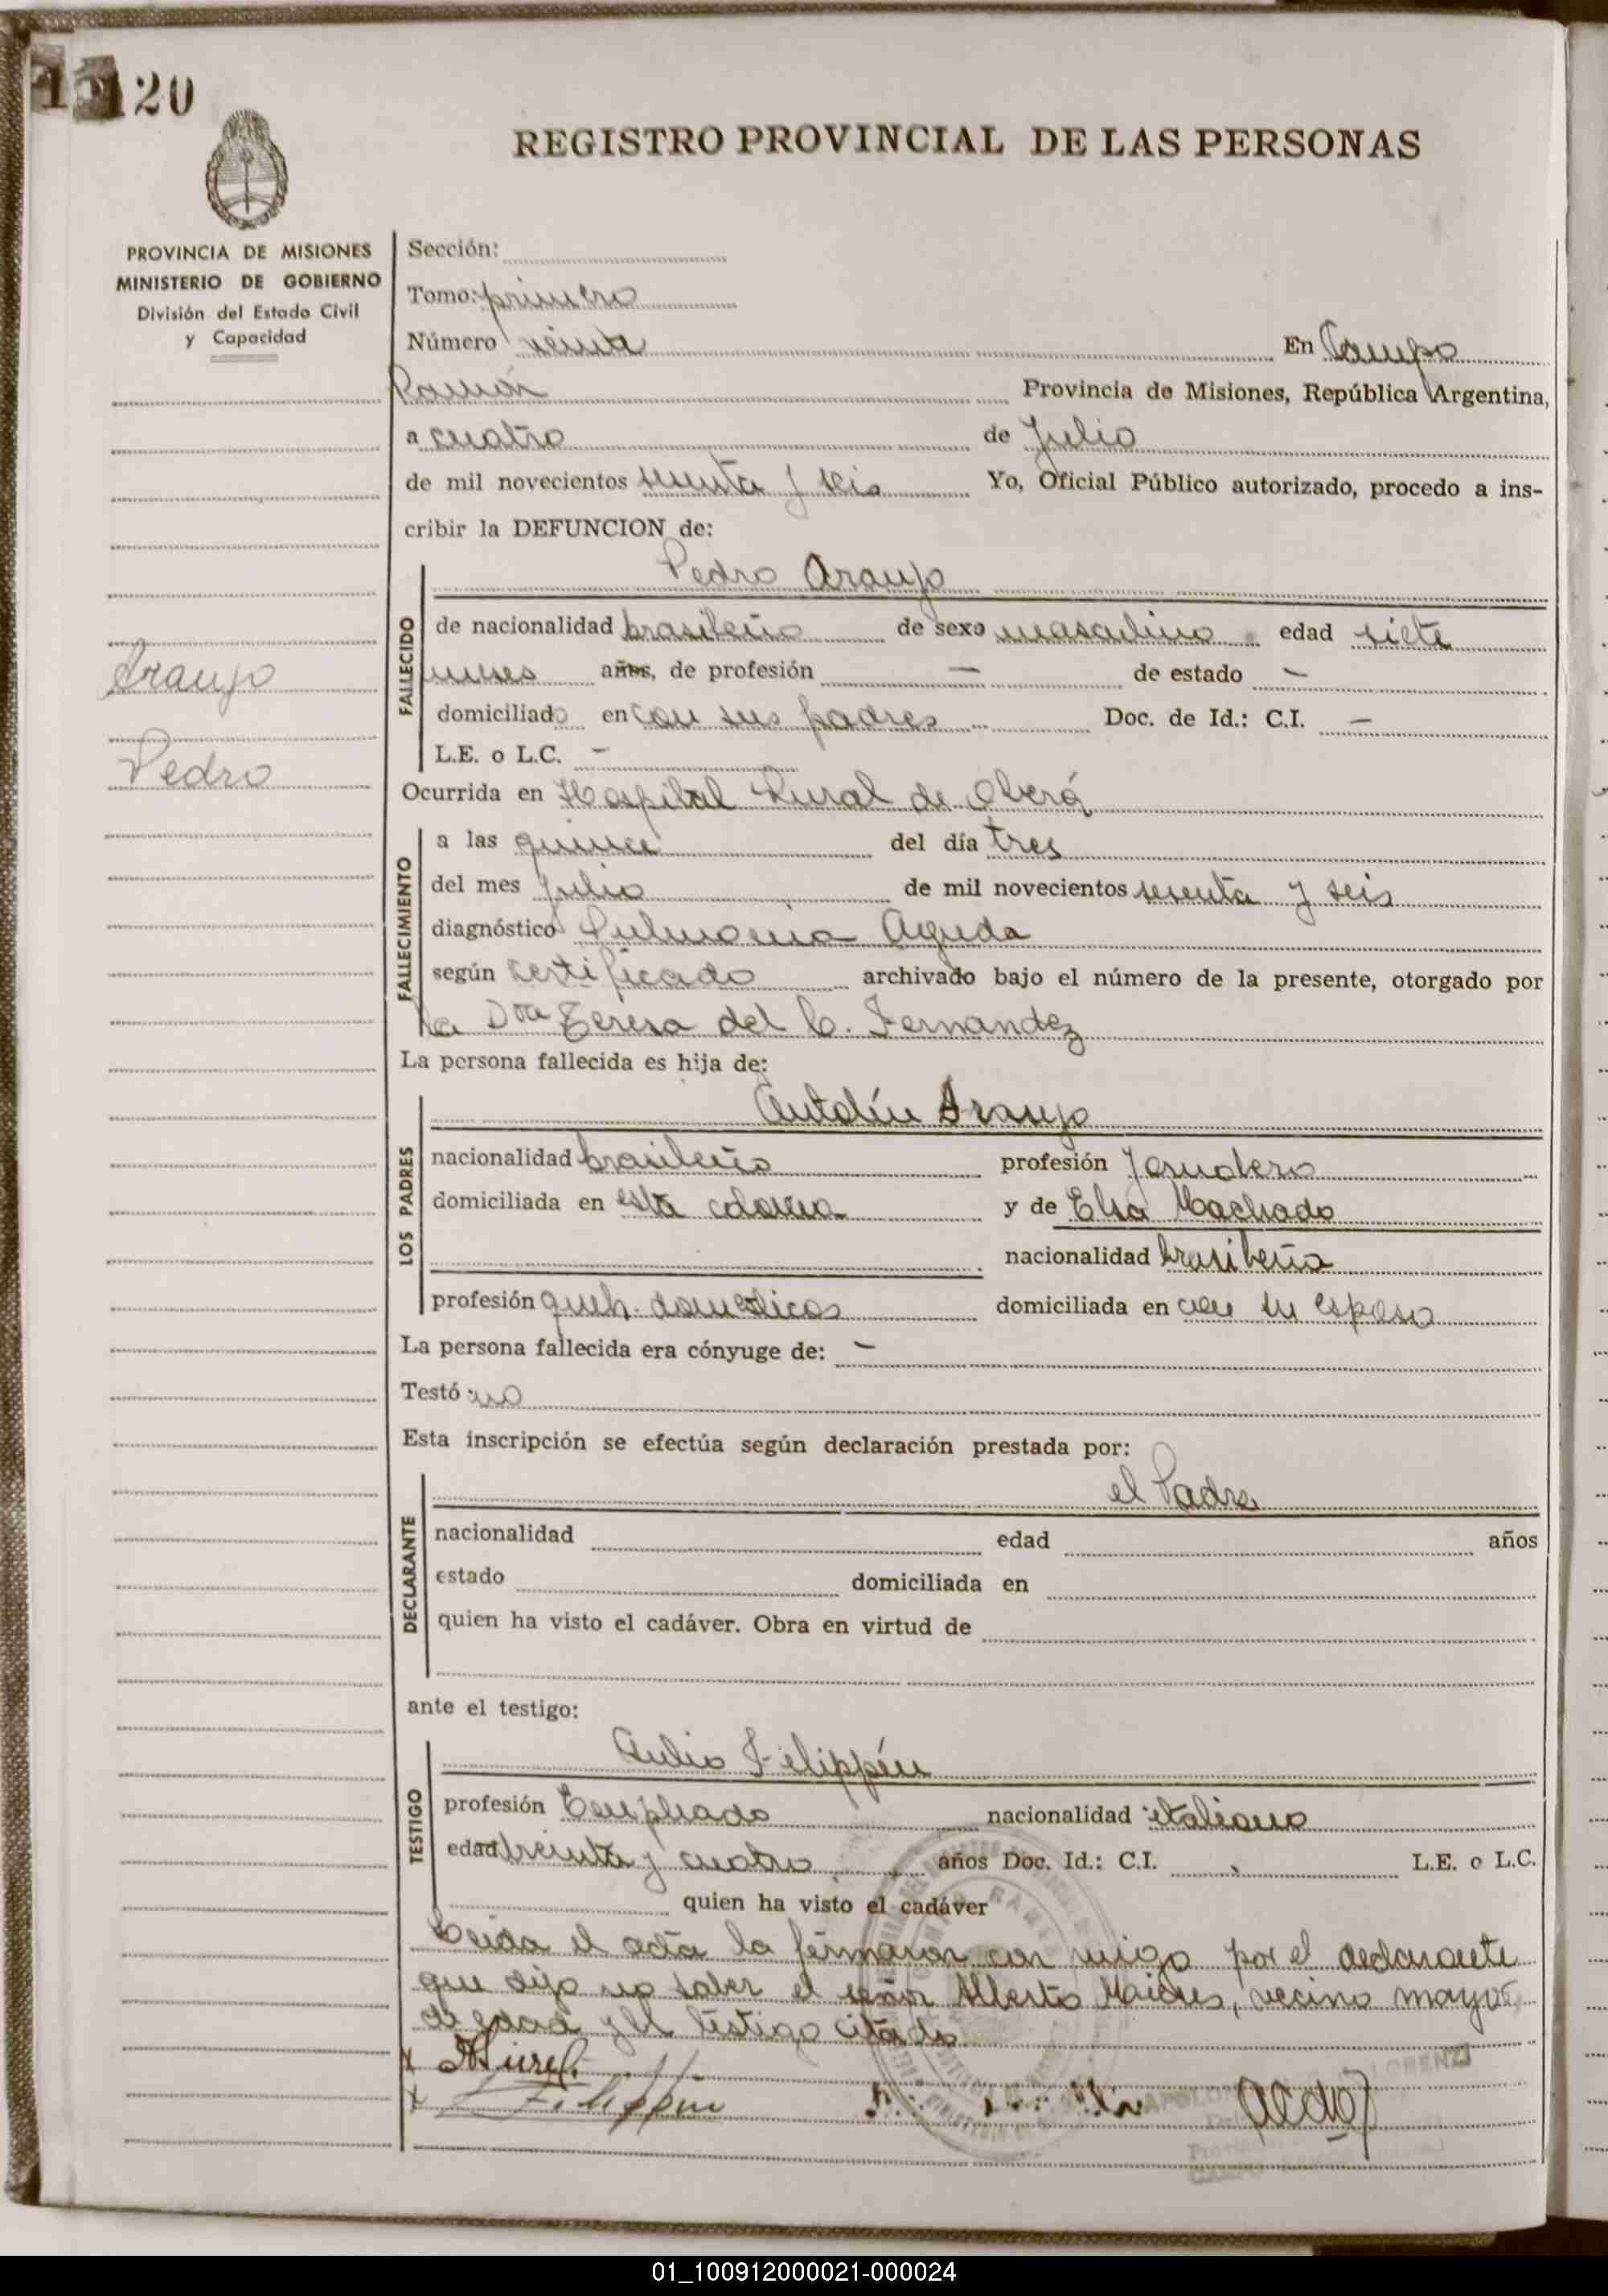 20
REGISTRO PROVINCIAL DE LAS PERSONAS
PROVINCIA DE MISIONES
MINISTERIO DE GOBIERNO
División del Estado Civil
y Capacidad
Sección:
Tomo: primero
Número veinte En Campo
Ramón Provincia de Misiones, República Argentina,
a cuatro de Julio
de mil novecientos sesenta y seis Yo, Oficial Público autorizado, procedo a ins-
cribir la DEFUNCION de:
Pedro Araujo
FALLECIDO
de nacionalidad brasileño de sexo masculino edad siete
meses años, de profesión — de estado —
Araujo
domiciliado en con sus padres Doc. de Id.: C.I. —
L.E. o L.C. —
Pedro
Ocurrida en Hospital Rural de Oberá
FALLECIMIENTO
a las quince del día tres
del mes Julio de mil novecientos sesenta y seis
diagnóstico Pulmonia Aguda
según certificado archivado bajo el número de la presente, otorgado por
la Dra Teresa del C. Fernandez
La persona fallecida es hija de:
Antolín Araujo
LOS PADRES
nacionalidad brasileño profesión Jornalero
domiciliada en esta colonia y de Elsa Machado
nacionalidad brasileña
profesión queh. domesticos domiciliada en con su esposo
La persona fallecida era cónyuge de: —
Testó no
Esta inscripción se efectúa según declaración prestada por:
el Padre
DECLARANTE
nacionalidad edad años
estado domiciliada en
quien ha visto el cadáver. Obra en virtud de
ante el testigo:
Julio Filippín
TESTIGO
profesión Empleado nacionalidad italiano
edad treinta y cuatro años Doc. Id.: C.I. L.E. o L.C.
quien ha visto el cadáver
Leida el acta la firmaron con migo por el declarante
que dijo no saber el señor Alberto, vecino mayor
de edad y el testigo citado
Filippin
01_100912000021-000024